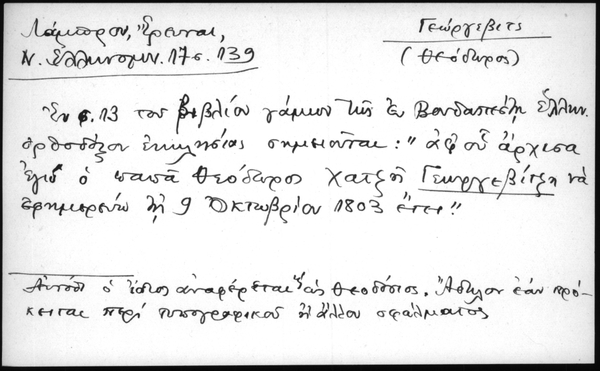 Λάμπρου, Ἔρευναι,
Ν. Ἑλληνομν. 17 σ. 139
Γεώργεβιτς
(Θεόδωρος)
Ἐν σ. 13 τοῦ βιβλίου γάμων τῆς ἐν Βουδαπέστῃ ἑλλην.
ὀρθοδόξου ἐκκλησίας σημειοῦται: "ἀφ' οὗ ἄρχισα
ἐγὼ ὁ παπᾶ Θεόδωρος Χατζῆ Γεωργεβίτζη νὰ
ἐφημερεύω τῇ 9 Ὀκτωβρίου 1803 ἔτει"
Αὐτόθι ὁ ἴδιος ἀναφέρεται καὶ ὡς Θεοδόσιος. Ἄδηλον ἐάν πρό-
κειται περί τυπογραφικοῦ ἢ ἄλλου σφάλματος